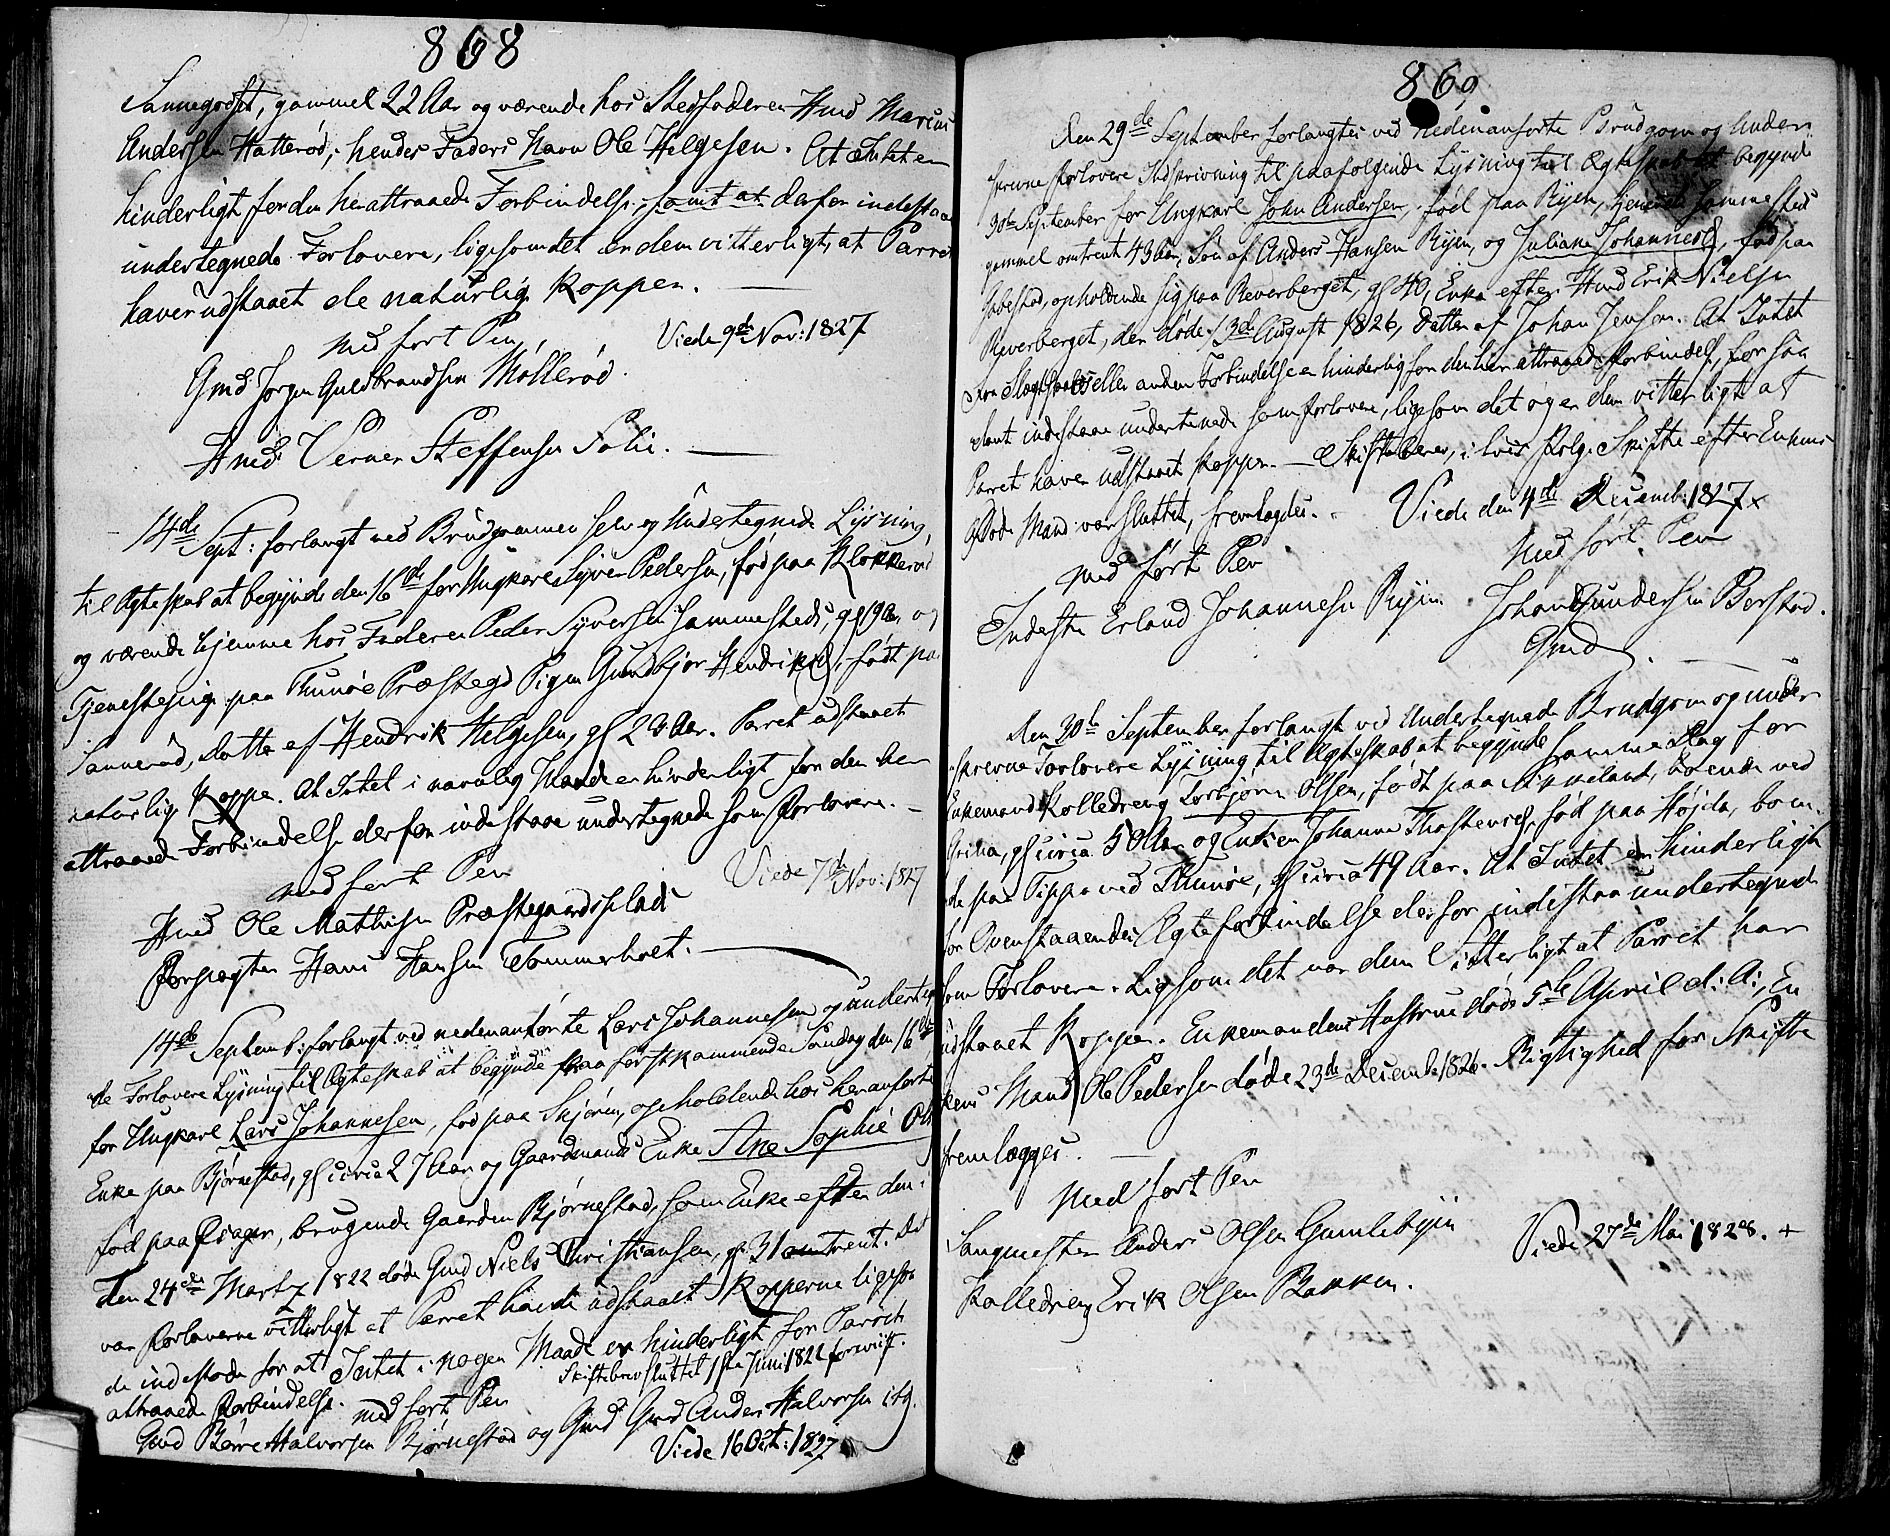 868
Sannegodset, gammel 22 Aar og værende hos Stedfaderen Hmd Marius
Andersen Hatterød; hendes Faders Navn Ole Helgesen. At Intet er
hinderligt for den her attraaede Forbindelse, samt at derfor indestaae
undertegnede Forlovere, ligesom det er dem vitterligt, at Parret
haver udstaaet de naturlige Kopper. —
med ført Pen, Viede 9de Nov: 1827
Gmd Jørgen Guldbrandsen Møllerød.
Hmd Verner Steffensen Solie. —
14de Sept: forlangt ved Brudgommen selv og Undertegnede Lysning
til Ægteskab at begynde den 16de for Ungkarl Syver Pedersen, fød paa Klokkerød
og værende hjemme hos Faderen Peder Syversen sammesteds, gl 19 Aar og
Tjenestepige paa Thunøe Præstegd Pigen Gundbjør Hendriksd, født paa
Sannerød, datter af Hendrik Helgesen, gl 28 Aar. Parret udstaaet
naturlig Kopper. At Intet i navnlig Maade er hinderligt for den her
attraaede Forbindelse derfor indestaae undertegnede som Forlovere. —
med ført Pen Viede 7de Nov: 1827
Hmd Ole Mathisen Præstegaardsplads
Forpagter Hans Hansen Tommerholt. —
14de Septemb: forlangt ved nedenanførte Lars Johannesen og undertegne
de Forlovere Lysning til Ægteskab at begynde paa førstkommende Søndag den 16de
for Ungkarl Lars Johannesen, fød paa Skjøren, opholdende hos heranførte
Enke paa Bjørnestad, gl circa 27 Aar og Gaardmands Enke Ane Sophie Ols
fød paa brugende Gaarden Bjørnestad, som Enke efter den
den 24de Martz 1822 døde Gmd Niels Christiansen, gl 31 omtrent. Det
var Forloverne vitterligt at Parret havde udstaaet Kopperne ligesom
de indestode for at Intet i nogen Maade er hinderligt for Parrets
attraaede Forbindelse. Skiftebrev sluttet 1ste Juni 1822 foreviist.
med ført Pen
Gmd Børre Halvorsen Bjørnestad og Gmd Gmd Anders Halvorsen
Viede 16 Oct: 1827
869
Den 29de September forlangtes ved Nedenanførte Brudgom og under
skrevne Forlovere Indskrivning til paafølgende Lysning til Ægteskab at begynde
30te September for Ungkarl John Andersen, fød paa Ryen, tjenende sammesteds
gammel omtrent 43 Aar, Søn af Anders Hansen Ryen, og Juliane Johannesd, fød paa
opholdende sig paa Reverberget, gl 40, Enke efter Hmd Erik Nielsen
Reverberget, der døde 13de August 1826, Datter af Johan Jensen. At Intet
Slægtskabs eller anden Forbindelse er hinderlig for den her attraaede Forbindelse, for saa
dant indestaae undertegnede som Forlovere, ligesom det og er dem vitterligt at
Parret haver udstaaet Kopper. — Skiftebrev, i hvis Følge Skifte efter Enkens
døde Mand var sluttet, fremlagdes. — Viede den 4de Decemb: 1827
med ført Pen med ført Pen
Inderste Erland Johannesen Ryen. Johan Gundersen Berstad.
Gmd. —
Den 30te September forlangt ved Undertegnede Brudgom og under
skrevne Forlovere Lysning til Ægteskab at begynde samme Dag for
Enkemand Kolledreng Torbjørn Olsen, født paa boende ved
gl circa 50 Aar og Enken Johanne Thostensd, fød paa Højda, boen
de paa Tippe ved Thunøe, gl circa 49 Aar. At Intet er hinderligt
for Ovenstaaendes Ægteforbindelse derfor indestaae undertegnede
som Forlovere. Ligesom det var dem vitterligt at Parret har
udstaaet Kopper. Enkemandens Hustrue døde 5te April d: A:, En
kens Mand Ole Pedersen døde 23de Decemb 1826. Rigtighed for Skifte
fremlægges. —
med ført Pen
Sangmester Anders Olsen Gamlebyen Viede 27de Mai 1828. +
Kolledreng Erik Olsen Bakken.